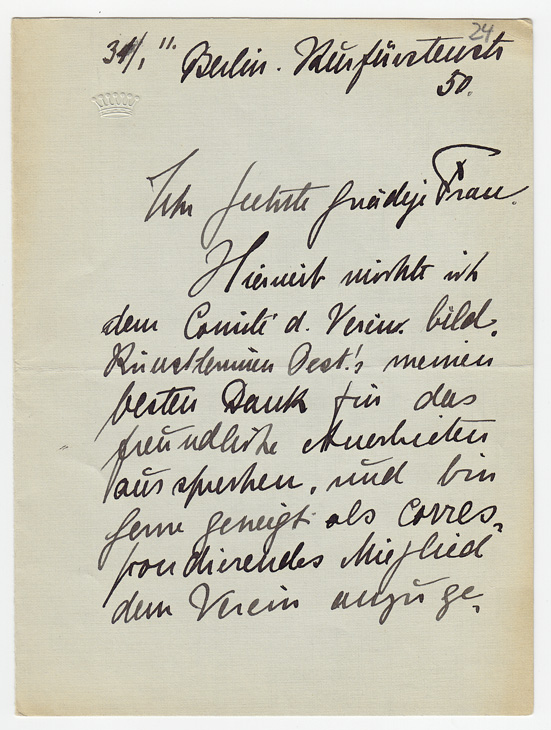 24
31/1 11. Berlin. Kurfürstenstr
50.
Sehr geehrte gnädige Frau.
Hiermit möchte ich
dem Comité d. Verein. bild.
Künstlerinnen Oest.'s meinen
besten Dank für das
freundliche Anerbieten
aussprechen, und bin
gerne geneigt als corres-
pondierendes Mitglied
dem Verein anzuge-